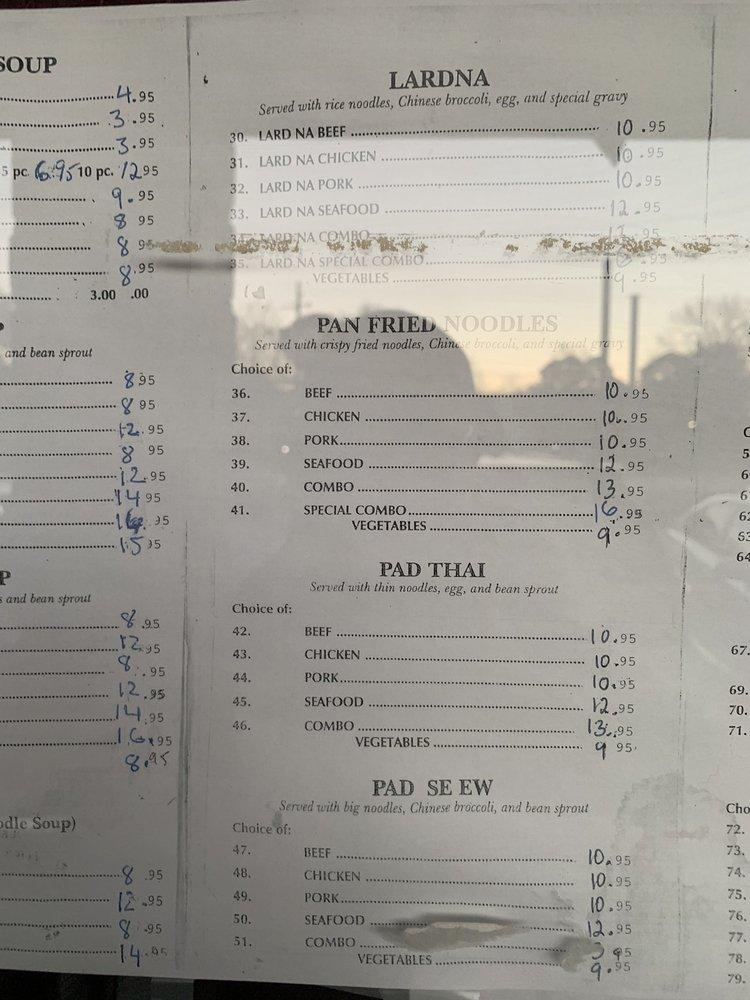 SOUP
4.95
3.95
3.95
5 pc. 6.95 10 pc. 12.95
9.95
8 95
8 95
8.95
3.00 .00
and bean sprout
8 95
8 95
12.95
8 95
12.95
14 95
16 .95
15 95
P
s and bean sprout
8 .95
12.95
8 .95
12.95
14.95
16.95
8.95
odle Soup)
8 .95
12.95
8 .95
14.95
LARDNA
Served with rice noodles, Chinese broccoli, egg, and special gravy
30. LARD NA BEEF 10.95
31. LARD NA CHICKEN 10.95
32. LARD NA PORK 10.95
33. LARD NA SEAFOOD 12.95
LARD NA COMBO .95
35. LARD NA SPECIAL COMBO .95
VEGETABLES 9.95
PAN FRIED NOODLES
Served with crispy fried noodles, Chinese broccoli, and special gravy
Choice of:
36. BEEF 10.95
37. CHICKEN 10.95
38. PORK 10.95
39. SEAFOOD 12.95
40. COMBO 13.95
41. SPECIAL COMBO 16.95
VEGETABLES 9.95
PAD THAI
Served with thin noodles, egg, and bean sprout
Choice of:
42. BEEF 10.95
43. CHICKEN 10.95
44. PORK 10.95
45. SEAFOOD 12.95
46. COMBO 13.95
VEGETABLES 9 95
PAD SE EW
Served with big noodles, Chinese broccoli, and bean sprout
Choice of:
47. BEEF 10.95
48. CHICKEN 10.95
49. PORK 10.95
50. SEAFOOD 12.95
51. COMBO 3 95
VEGETABLES 9.95
62
63
64
67.
69.
70.
71.
Cho
72.
73.
74.
75.
76.
77.
78.
79.